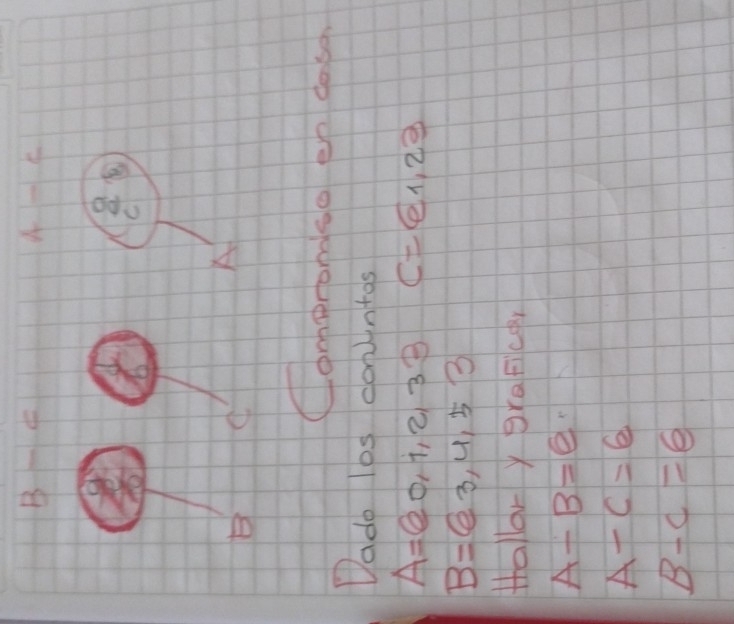 B - C A - C
B C A
Compromiso en casa
Dado los conjuntos
A={0,1,2,3} C={1,2}
B={3,4,5}
Hallar y graficar
A - B = {
A - C = {
B - C = {